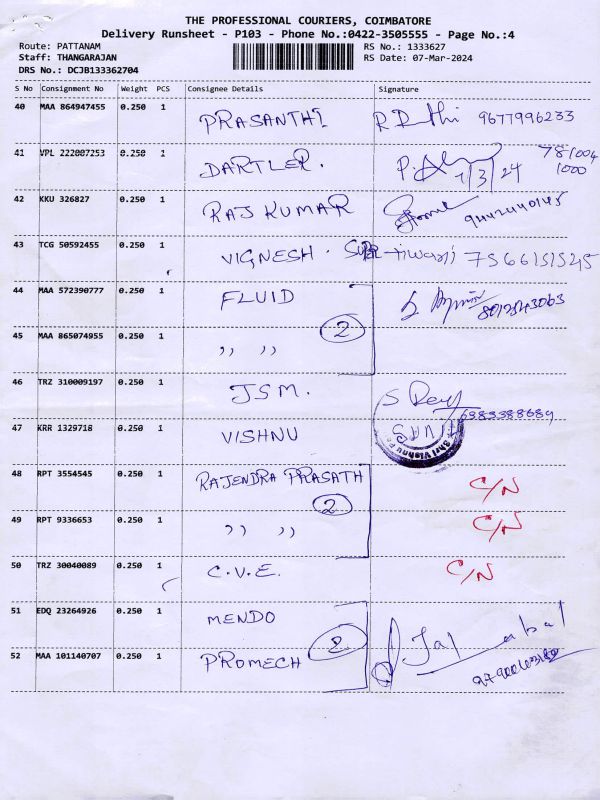 THE PROFESSIONAL COURIERS, COIMBATORE
Delivery Runsheet - P103 - Phone No.:0422-3505555 - Page No.:4
Route: PATTANAM RS No.: 1333627
Staff: THANGARAJAN RS Date: 07-Mar-2024
DRS No.: DCJB133362704
S No Consignment No Weight PCS Consignee Details Signature
40 MAA 864947455 0.250 1 PRASANTHI 9677996233
41 VPL 222007253 0.250 1 DARTLER. 7/3/24 781004 1000
42 KKU 326827 0.250 1 RAJ KUMAR
43 TCG 50592455 0.250 1 VIGNESH. 7566151545
44 MAA 572390777 0.250 1 FLUID
2
45 MAA 865074955 0.250 1 ,, ,,
46 TRZ 310009197 0.250 1 JSM. 6383388689
47 KRR 1329718 0.250 1 VISHNU Shri Vishnu
48 RPT 3554545 0.250 1 RAJENDRA PRASATH C/N
2
49 RPT 9336653 0.250 1 ,, ,, C/N
50 TRZ 30040089 0.250 1 C.V.E. C/N
51 EDQ 23264926 0.250 1 MENDO
2
52 MAA 101140707 0.250 1 PROMECH